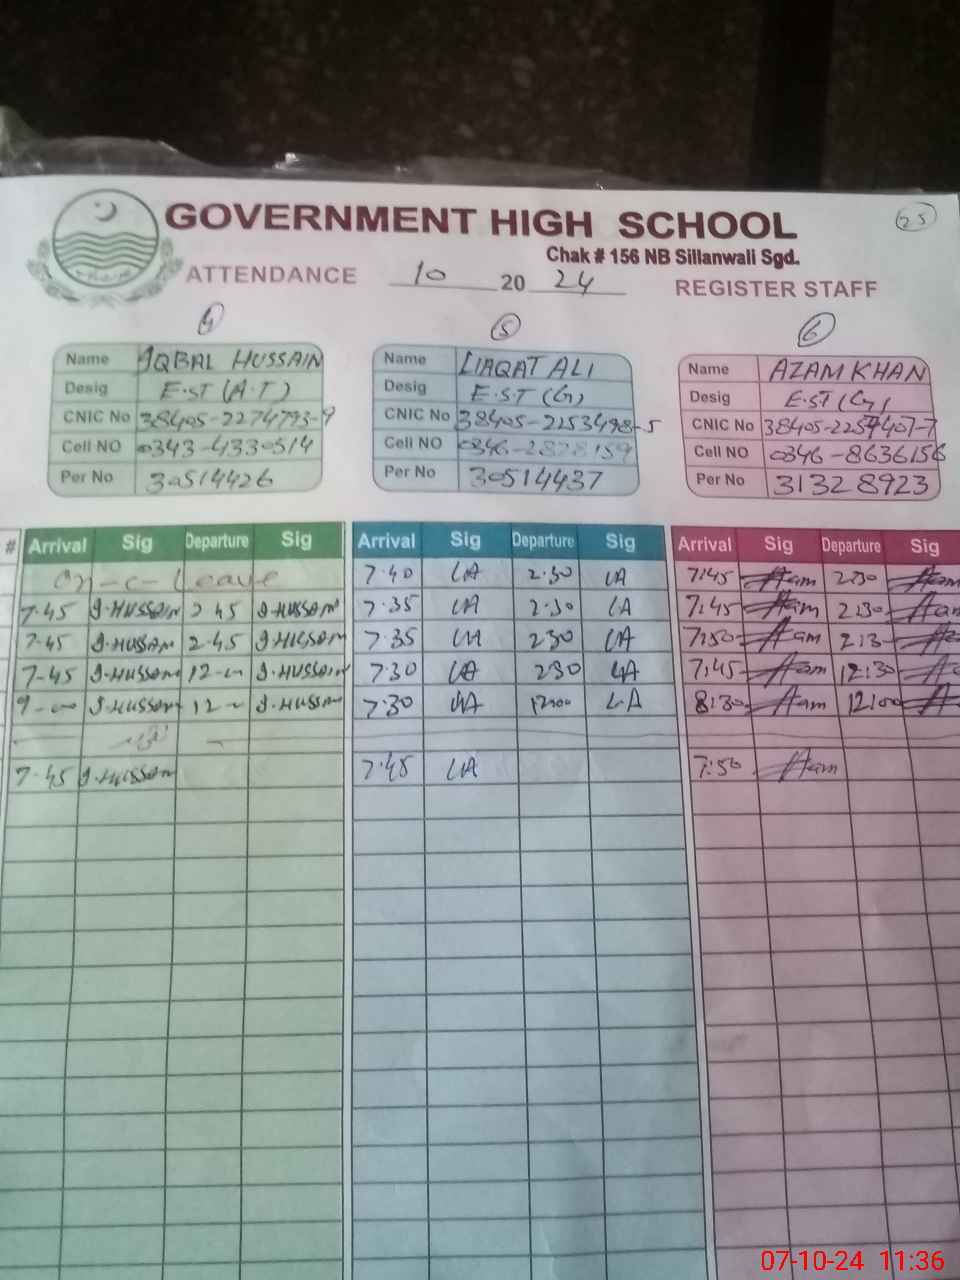 25
GOVERNMENT HIGH SCHOOL
Chak # 156 NB Sillanwali Sgd.
ATTENDANCE 10 20 24 REGISTER STAFF
4 5 6
Name IQBAL HUSSAIN Name LIAQAT ALI Name AZAM KHAN
Desig E.ST (A.T) Desig E.S.T (G) Desig E.S.T (G)
CNIC No 38405-2274793-9 CNIC No 38405-2253498-5 CNIC No 38405-2257407-7
Cell NO 0343-4330514 Cell NO 0346-2828159 Cell NO 0346-8636156
Per No 30514426 Per No 30514437 Per No 31328923
# Arrival Sig Departure Sig Arrival Sig Departure Sig Arrival Sig Departure Sig
On-c-Leave 7.40 LA 2.30 LA 7:45 Azam 2:30 Azam
7.45 I.HUSSAIN 2.45 I.HUSSAIN 7.35 LA 2.30 LA 7:45 Azam 2:30
7.45 I.HUSSAIN 2.45 I.HUSSAIN 7.35 LA 2.30 LA 7:50 Azam 2:3
7.45 I.HUSSAIN 12 I.HUSSAIN 7.30 LA 2.30 LA 7:45 Azam 12:30
9-00 I.HUSSAIN 12 I.HUSSAIN 7.30 LA 12.00 L.A 8:30 Azam 12:00
7.45 I.HUSSAIN 7.45 LA 7:50 Azam
07-10-24 11:36